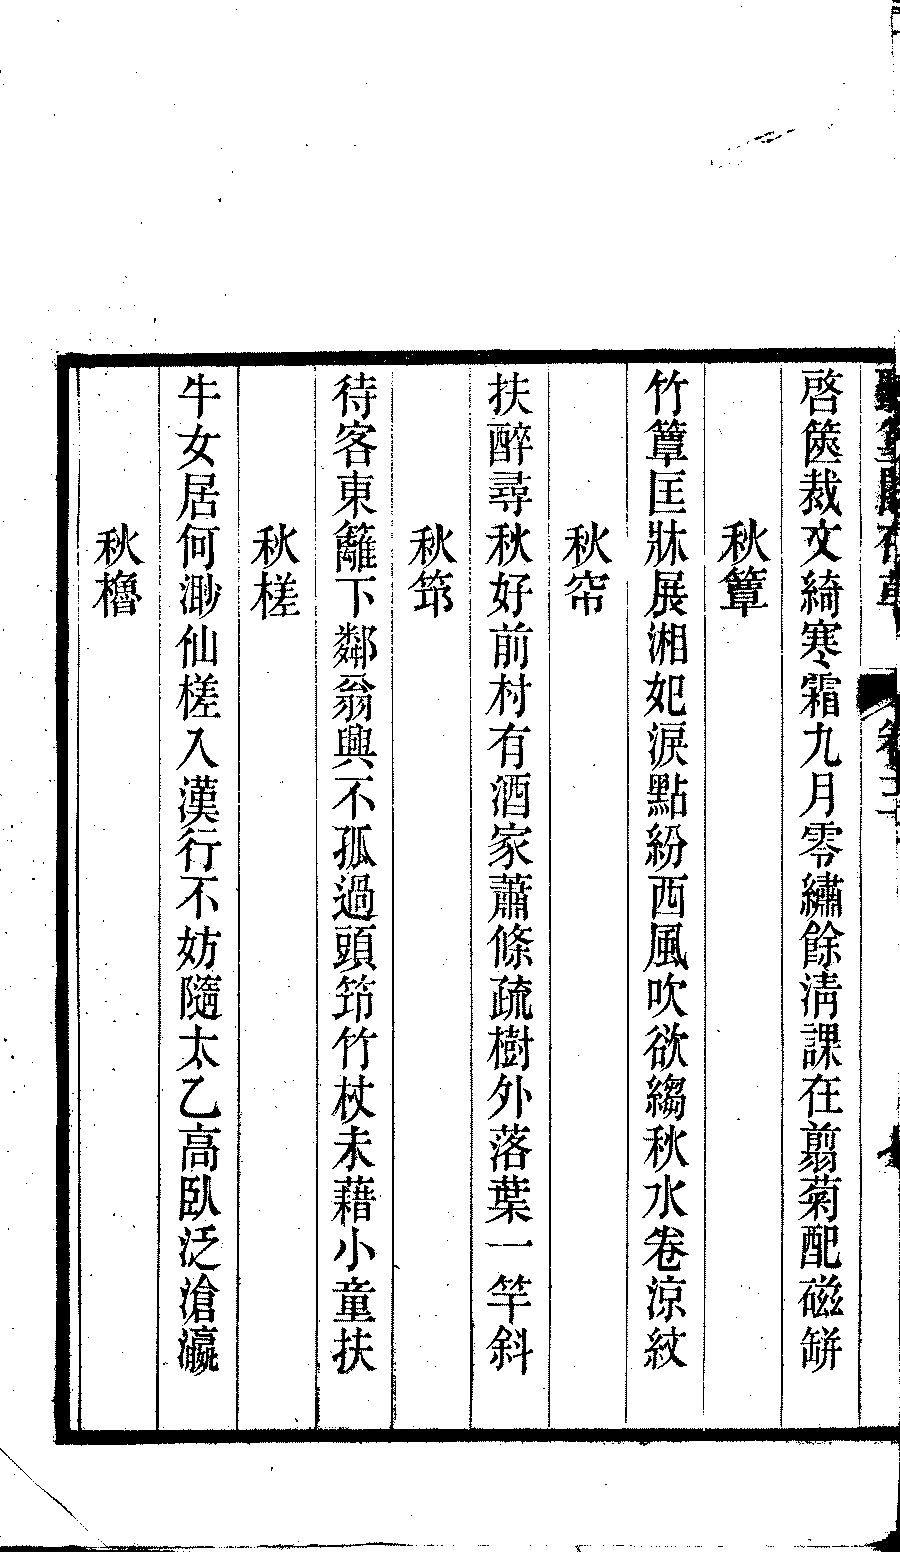 啓篋裁文綺寒霜九月零繡餘淸課在翦菊配磁缾
秋簟
竹簟匡牀展湘妃淚點紛西風吹欲縐秋水卷涼紋
秋帘
扶醉尋秋好前村有酒家蕭條疏樹外落葉一竿斜
秋筇
待客東籬下鄰翁興不孤過頭筇竹杖未藉小童扶
秋槎
牛女居何渺仙槎入漢行不妨隨太乙高臥泛滄瀛
秋櫓